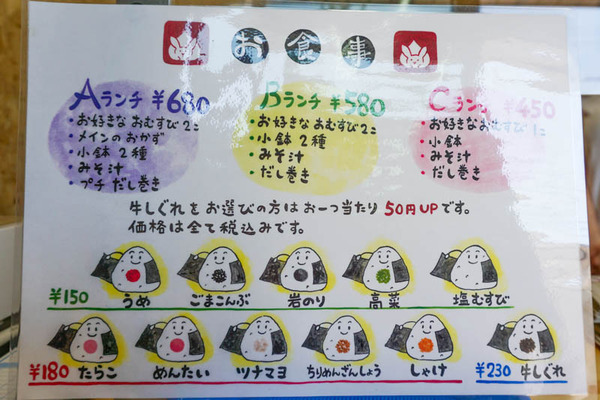 お食事
Aランチ ¥680
・お好きなおむすび2コ
・メインのおかず
・小鉢 2種
・みそ汁
・プチ だし巻き
Bランチ ¥580
・お好きなおむすび2コ
・小鉢 2種
・みそ汁
・だし巻き
Cランチ ¥450
・お好きなおむすび 1コ
・小鉢
・みそ汁
・だし巻き
牛しぐれをお選びの方はお一つ当たり 50円UPです。
価格は全て税込みです。
¥150 うめ ごまこんぶ 岩のり 高菜 塩むすび
¥180 たらこ めんたい ツナマヨ ちりめんざんしょう しゃけ ¥230 牛しぐれ